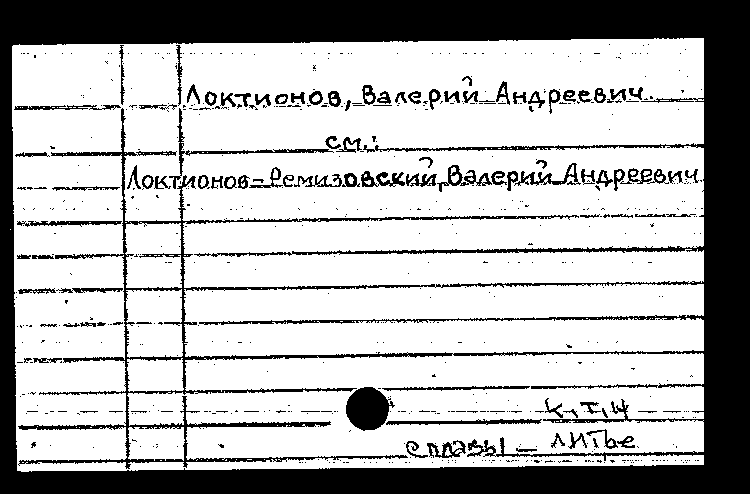 Локтионов, Валерий Андреевич.
см.:
Локтионов-Ремизовский, Валерий Андреевич
к.т.н
сплавы – литье